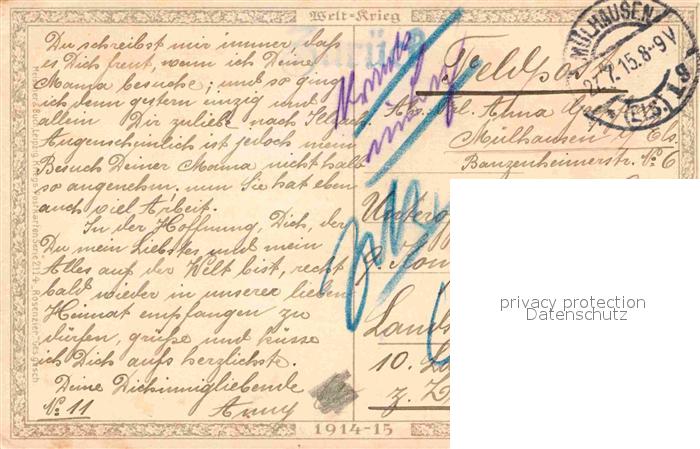 Welt-Krieg
Du schreibst mir immer, daß
es Dich freut, wenn ich Deine
Mama besuche; und so ging
ich denn gestern einzig und
allein Dir zuliebe nach
Augenscheinlich ist jedoch mein
Besuch Deiner Mama nicht halb
so angenehm. nun Sie hat eben
auch viel Arbeit.
In der Hoffnung, Dich, der
Du mein Liebstes und mein
Alles auf der Welt bist, recht
bald wieder in unserer lieben
Heimat empfangen zu
dürfen, grüße und küsse
ich Dich aufs herzlichste.
Deine Dichinnigliebende
No. 11 Anny
1914-15
Zurück
Feldpo
MÜLHAUSEN
27.7.15.8-9V
(ELS.) 1
Anna
Mülhausen i/Els.
Banzenheimerstr. No. 6
Untero
Lands
10.
z.
privacy protection
Datenschutz